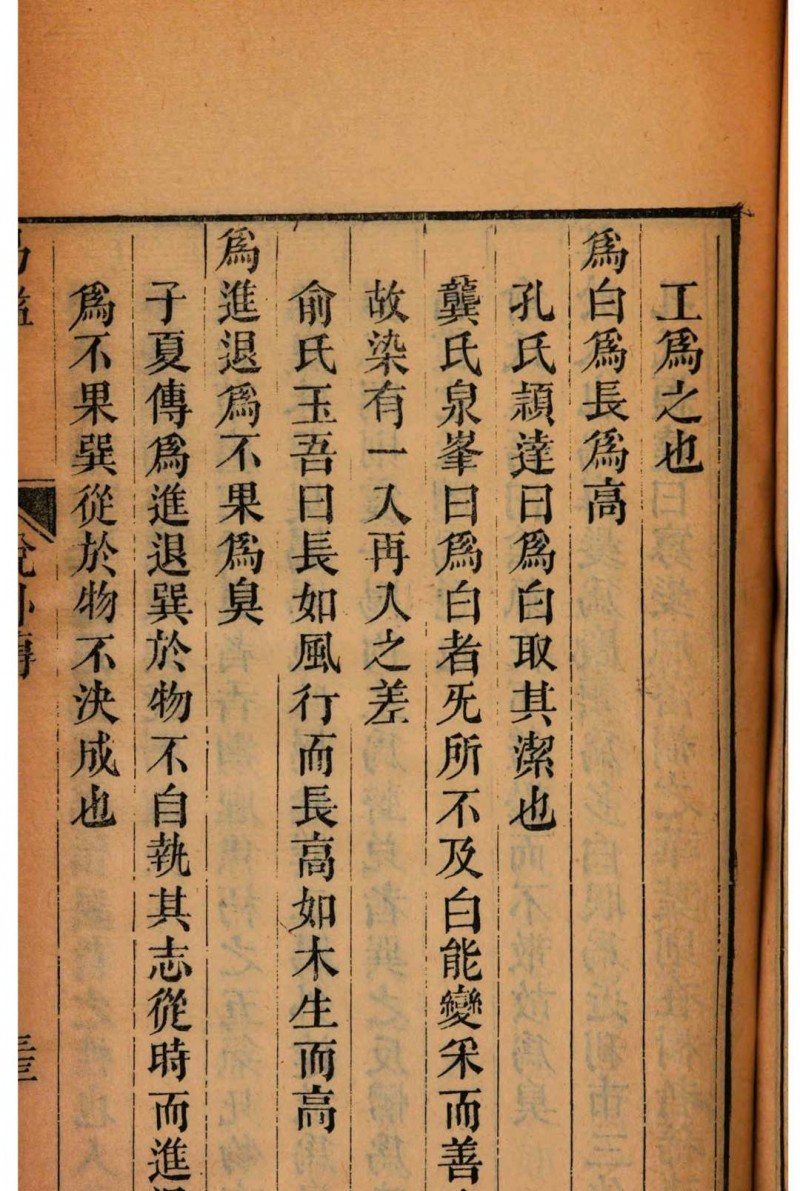 工爲之也
爲白爲長爲高
孔氏頴達曰爲白取其潔也
龔氏泉峯曰爲白者旡所不及白能變采而善
故染有一入再入之差
俞氏玉吾曰長如風行而長高如木生而高
爲進退爲不果爲臭
子夏傳爲進退巽於物不自執其志從時而進
爲不果巽從於物不決成也